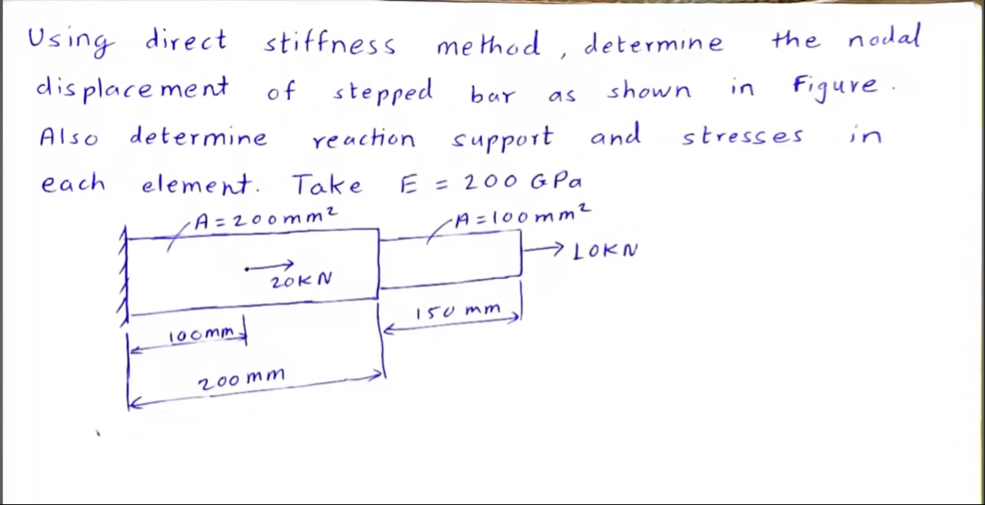 Using direct stiffness method, determine the nodal
displacement of stepped bar as shown in Figure.
Also determine reaction support and stresses in
each element. Take E = 200 GPa
A=200mm²
A=100mm²
10KN
20KN
150 mm
100mm
200mm